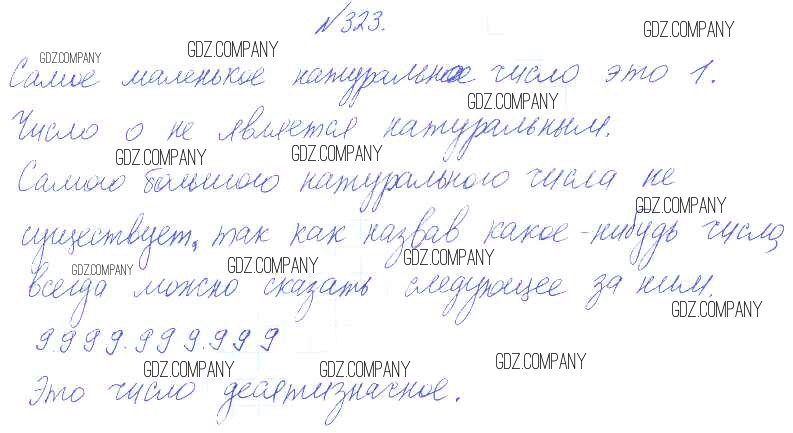 №323.
GDZ.COMPANY
GDZ.COMPANY
GDZ.COMPANY
Самое маленькое натуральное число это 1.
GDZ.COMPANY
Число 0 не является натуральным.
GDZ.COMPANY
GDZ.COMPANY
Самого большого натурального числа не
GDZ.COMPANY
существует, так как назвав какое-нибудь число,
GDZ.COMPANY
GDZ.COMPANY
GDZ.COMPANY
всегда можно сказать следующее за ним.
GDZ.COMPANY
9.999.999.999
GDZ.COMPANY
GDZ.COMPANY
GDZ.COMPANY
Это число десятизначное.